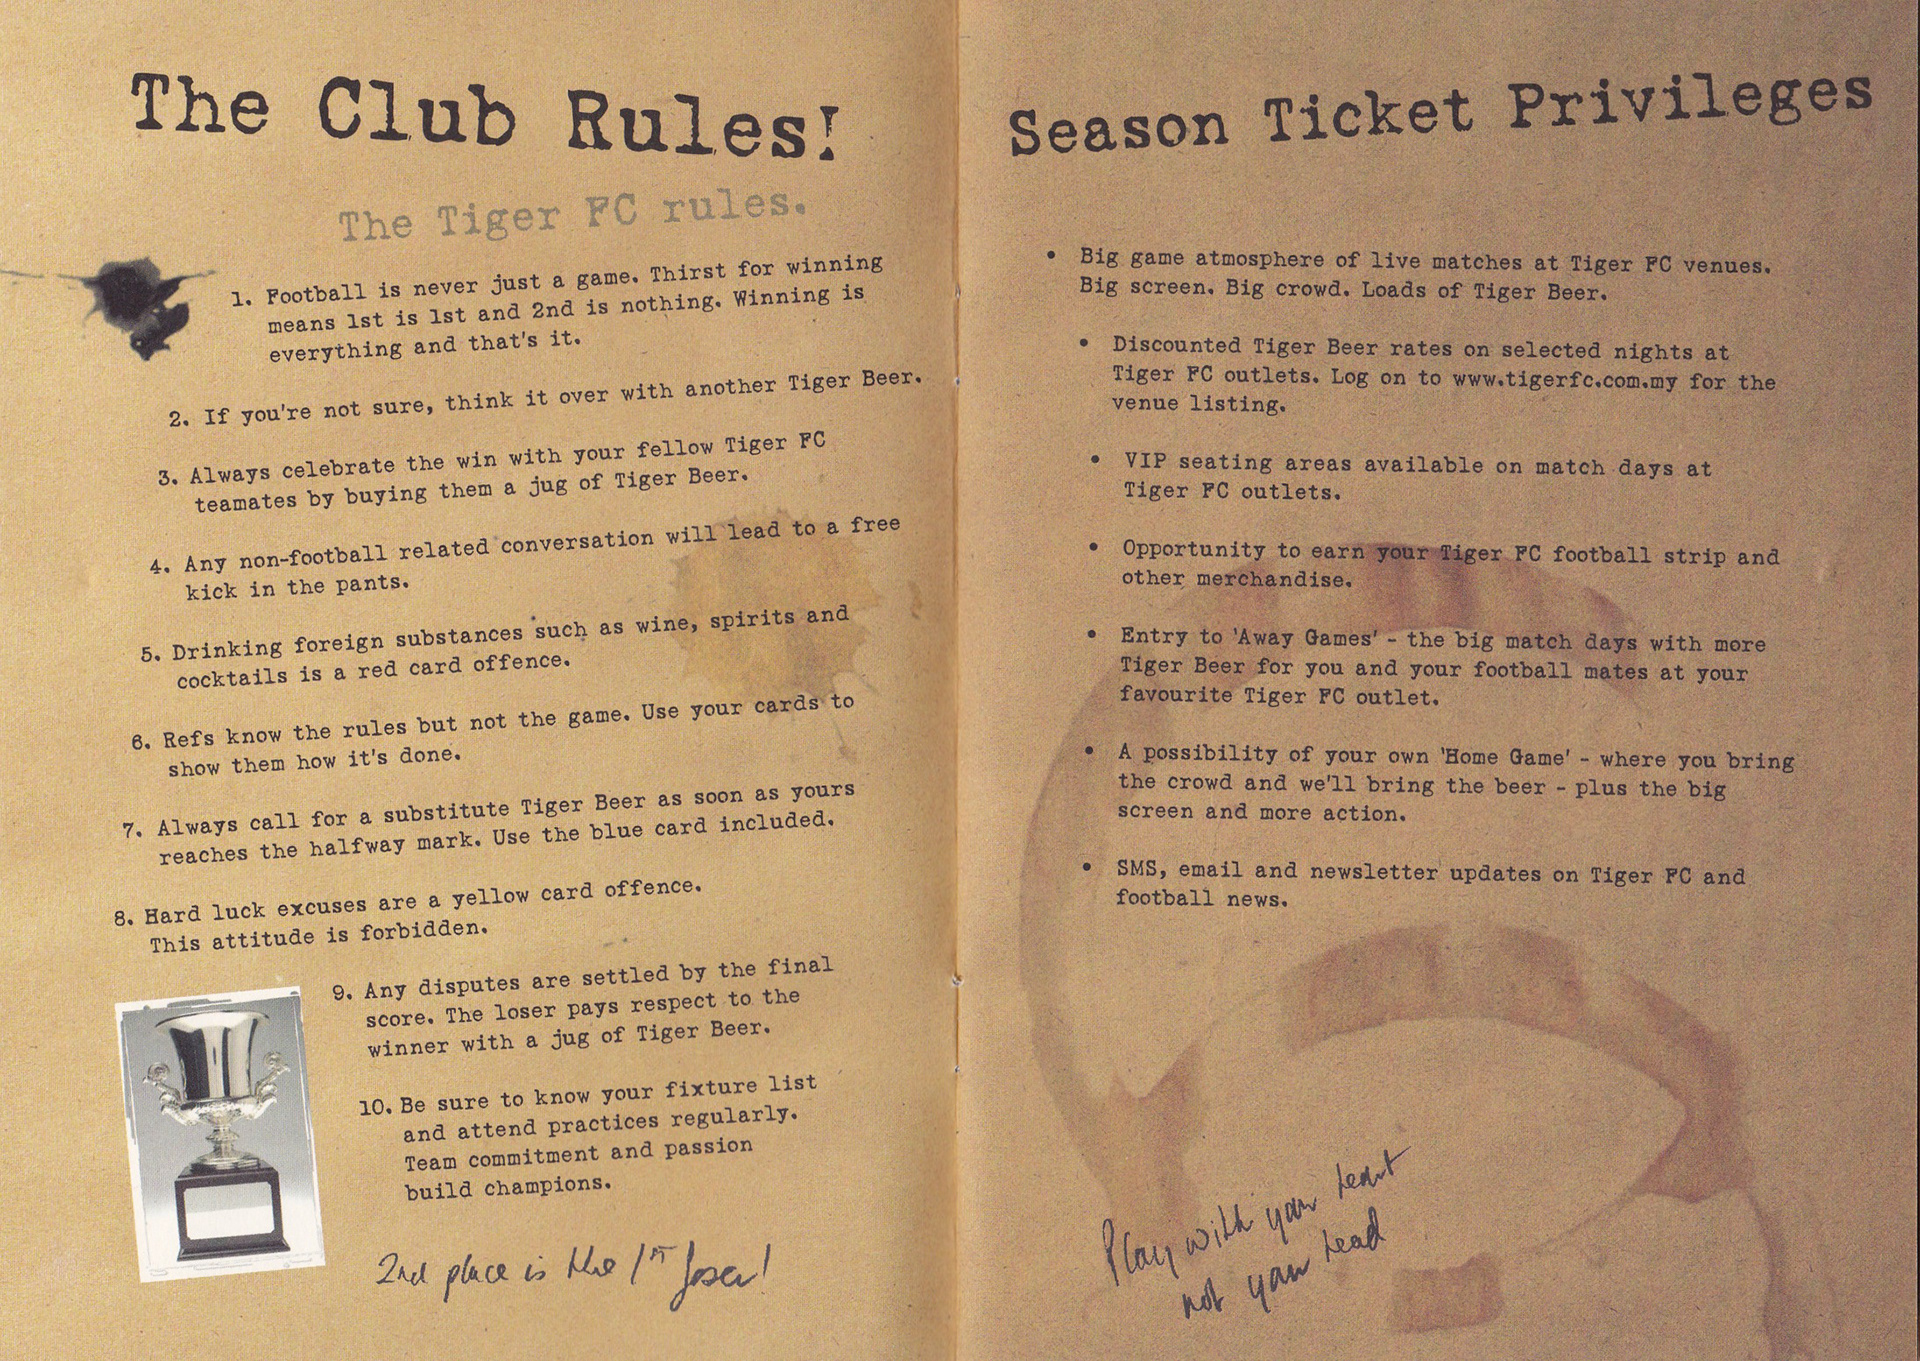 The Club Rules!
The Tiger FC rules.
1. Football is never just a game. Thirst for winning
means 1st is 1st and 2nd is nothing. Winning is
everything and that's it.
2. If you're not sure, think it over with another Tiger Beer.
3. Always celebrate the win with your fellow Tiger FC
teamates by buying them a jug of Tiger Beer.
4. Any non-football related conversation will lead to a free
kick in the pants.
5. Drinking foreign substances such as wine, spirits and
cocktails is a red card offence.
6. Refs know the rules but not the game. Use your cards to
show them how it's done.
7. Always call for a substitute Tiger Beer as soon as yours
reaches the halfway mark. Use the blue card included.
8. Hard luck excuses are a yellow card offence.
This attitude is forbidden.
9. Any disputes are settled by the final
score. The loser pays respect to the
winner with a jug of Tiger Beer.
10. Be sure to know your fixture list
and attend practices regularly.
Team commitment and passion
build champions.
2nd place is the 1st loser!
Season Ticket Privileges
• Big game atmosphere of live matches at Tiger FC venues.
Big screen. Big crowd. Loads of Tiger Beer.
• Discounted Tiger Beer rates on selected nights at
Tiger FC outlets. Log on to www.tigerfc.com.my for the
venue listing.
• VIP seating areas available on match days at
Tiger FC outlets.
• Opportunity to earn your Tiger FC football strip and
other merchandise.
• Entry to 'Away Games' - the big match days with more
Tiger Beer for you and your football mates at your
favourite Tiger FC outlet.
• A possibility of your own 'Home Game' - where you bring
the crowd and we'll bring the beer - plus the big
screen and more action.
• SMS, email and newsletter updates on Tiger FC and
football news.
Play with your heart
not your head